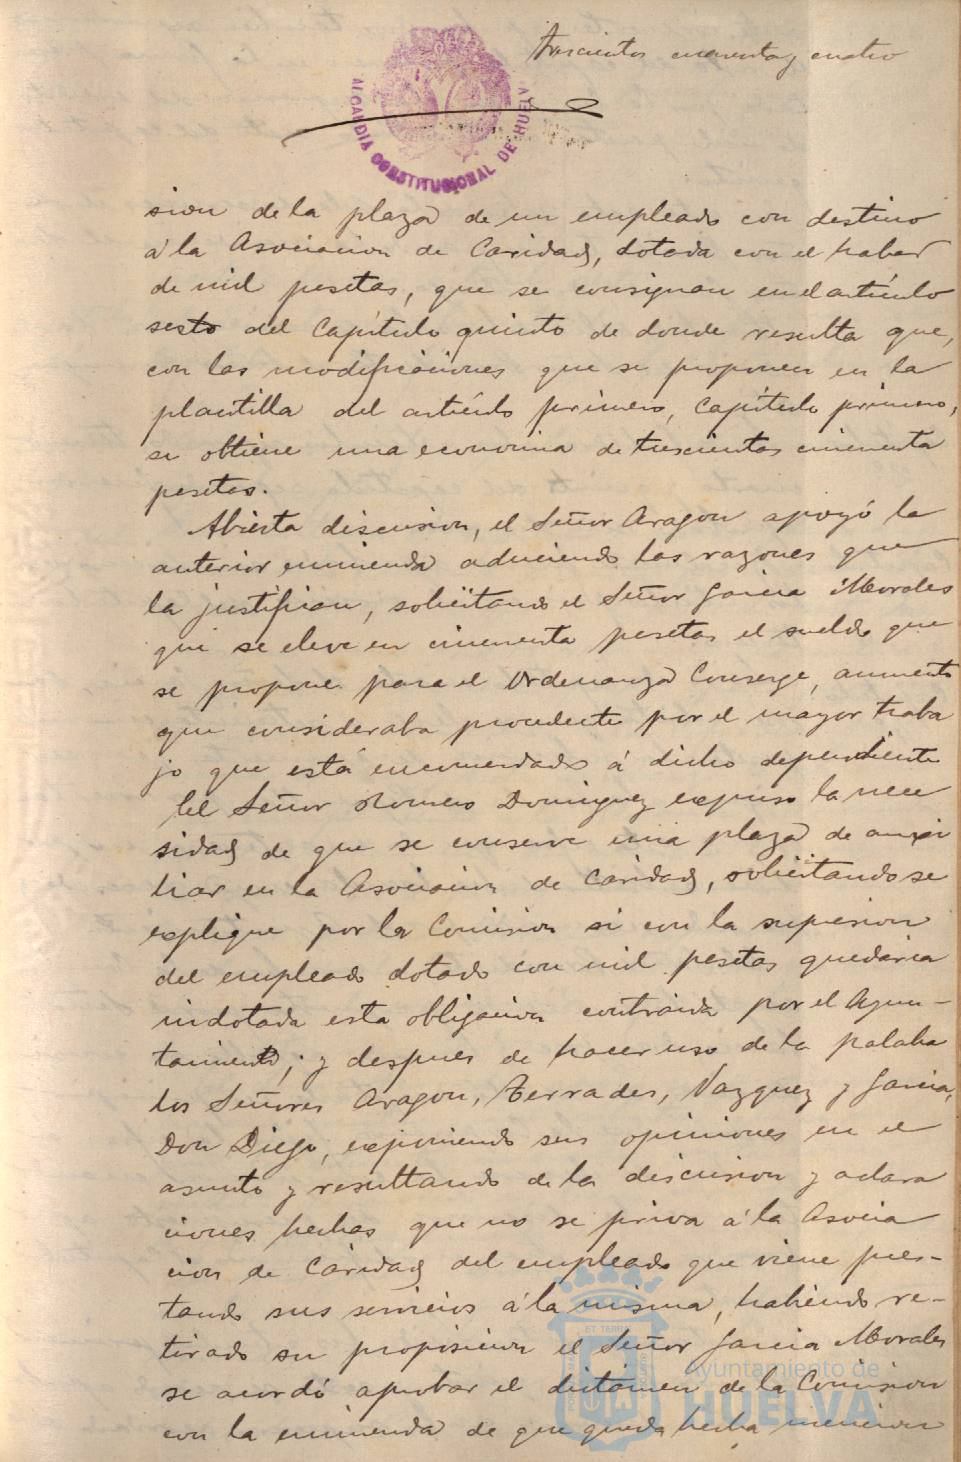 Trescientos cuarenta y cuatro
ALCALDIA CONSTITUCIONAL DE HUELVA
sion de la plaza de un empleado con destino
á la Asociacion de Caridad, dotada con el haber
de mil pesetas, que se consignan en el artículo
sesto del Capítulo quinto de donde resulta que,
con las modificaciones que se proponen en la
plantilla del artículo primero, Capítulo primero,
se obtiene una economia de trescientas cincuenta
pesetas.
Abierta discusion, el Señor Aragon apoyó la
anterior enmienda aduciendo las razones que
la justifican, solicitando el Señor Garcia Morales
que se eleve en cincuenta pesetas el sueldo que
se propone para el Ordenanza Conserge, aumento
que consideraba procedente por el mayor traba
jo que está encomendado á dicho dependiente
El Señor Romero Dominguez expuso la nece
sidad de que se conserve una plaza de auxi
liar en la Asociacion de Caridad, solicitando se
explique por la Comision si con la supresion
del empleado dotado con mil pesetas quedaria
indotada esta obligacion contraida por el Ayun-
tamiento; y despues de hacer uso de la palabra
los Señores Aragon, Terrades, Vazquez y Garcia,
Don Diego, exponiendo sus opiniones en el
asunto y resultando de la discusion y aclara
ciones hechas que no se priva á la Asocia
cion de Caridad del empleado que viene pres-
tando sus servicios á la misma, habiendo re-
tirado su proposicion el Señor Garcia Morales
se acordó aprobar el dictámen de la Comision
con la enmienda de que queda hecha mencion
Ayuntamiento de
HUELVA